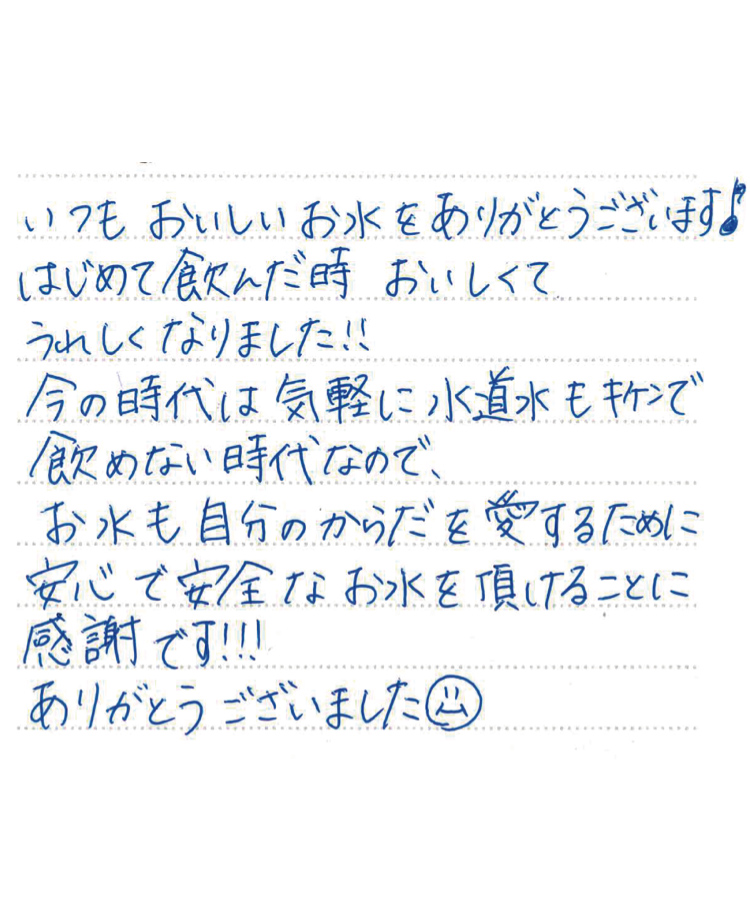 いつも おいしいお水をありがとうございます♪
はじめて飲んだ時 おいしくて
うれしくなりました!!
今の時代は気軽に水道水もキケンで
飲めない時代なので、
お水も自分のからだを愛するために
安心で安全なお水を頂けることに
感謝です!!!
ありがとうございました